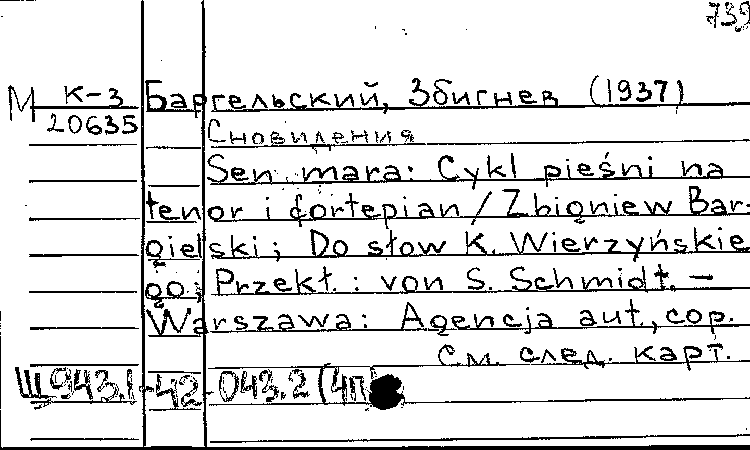 739
М К-3 Баргельский, Збигнев (1937)
20635 Сновидения
Sen mara: Cykl pieśni na
tenor i fortepian / Zbigniew Bar-
gielski; Do słow K. Wierzyńskie
go; Przekł.: von S. Schmidt. —
Warszawa: Agencja aut., cop.
См. след. карт.
Щ943.1-42-043.2(4П)